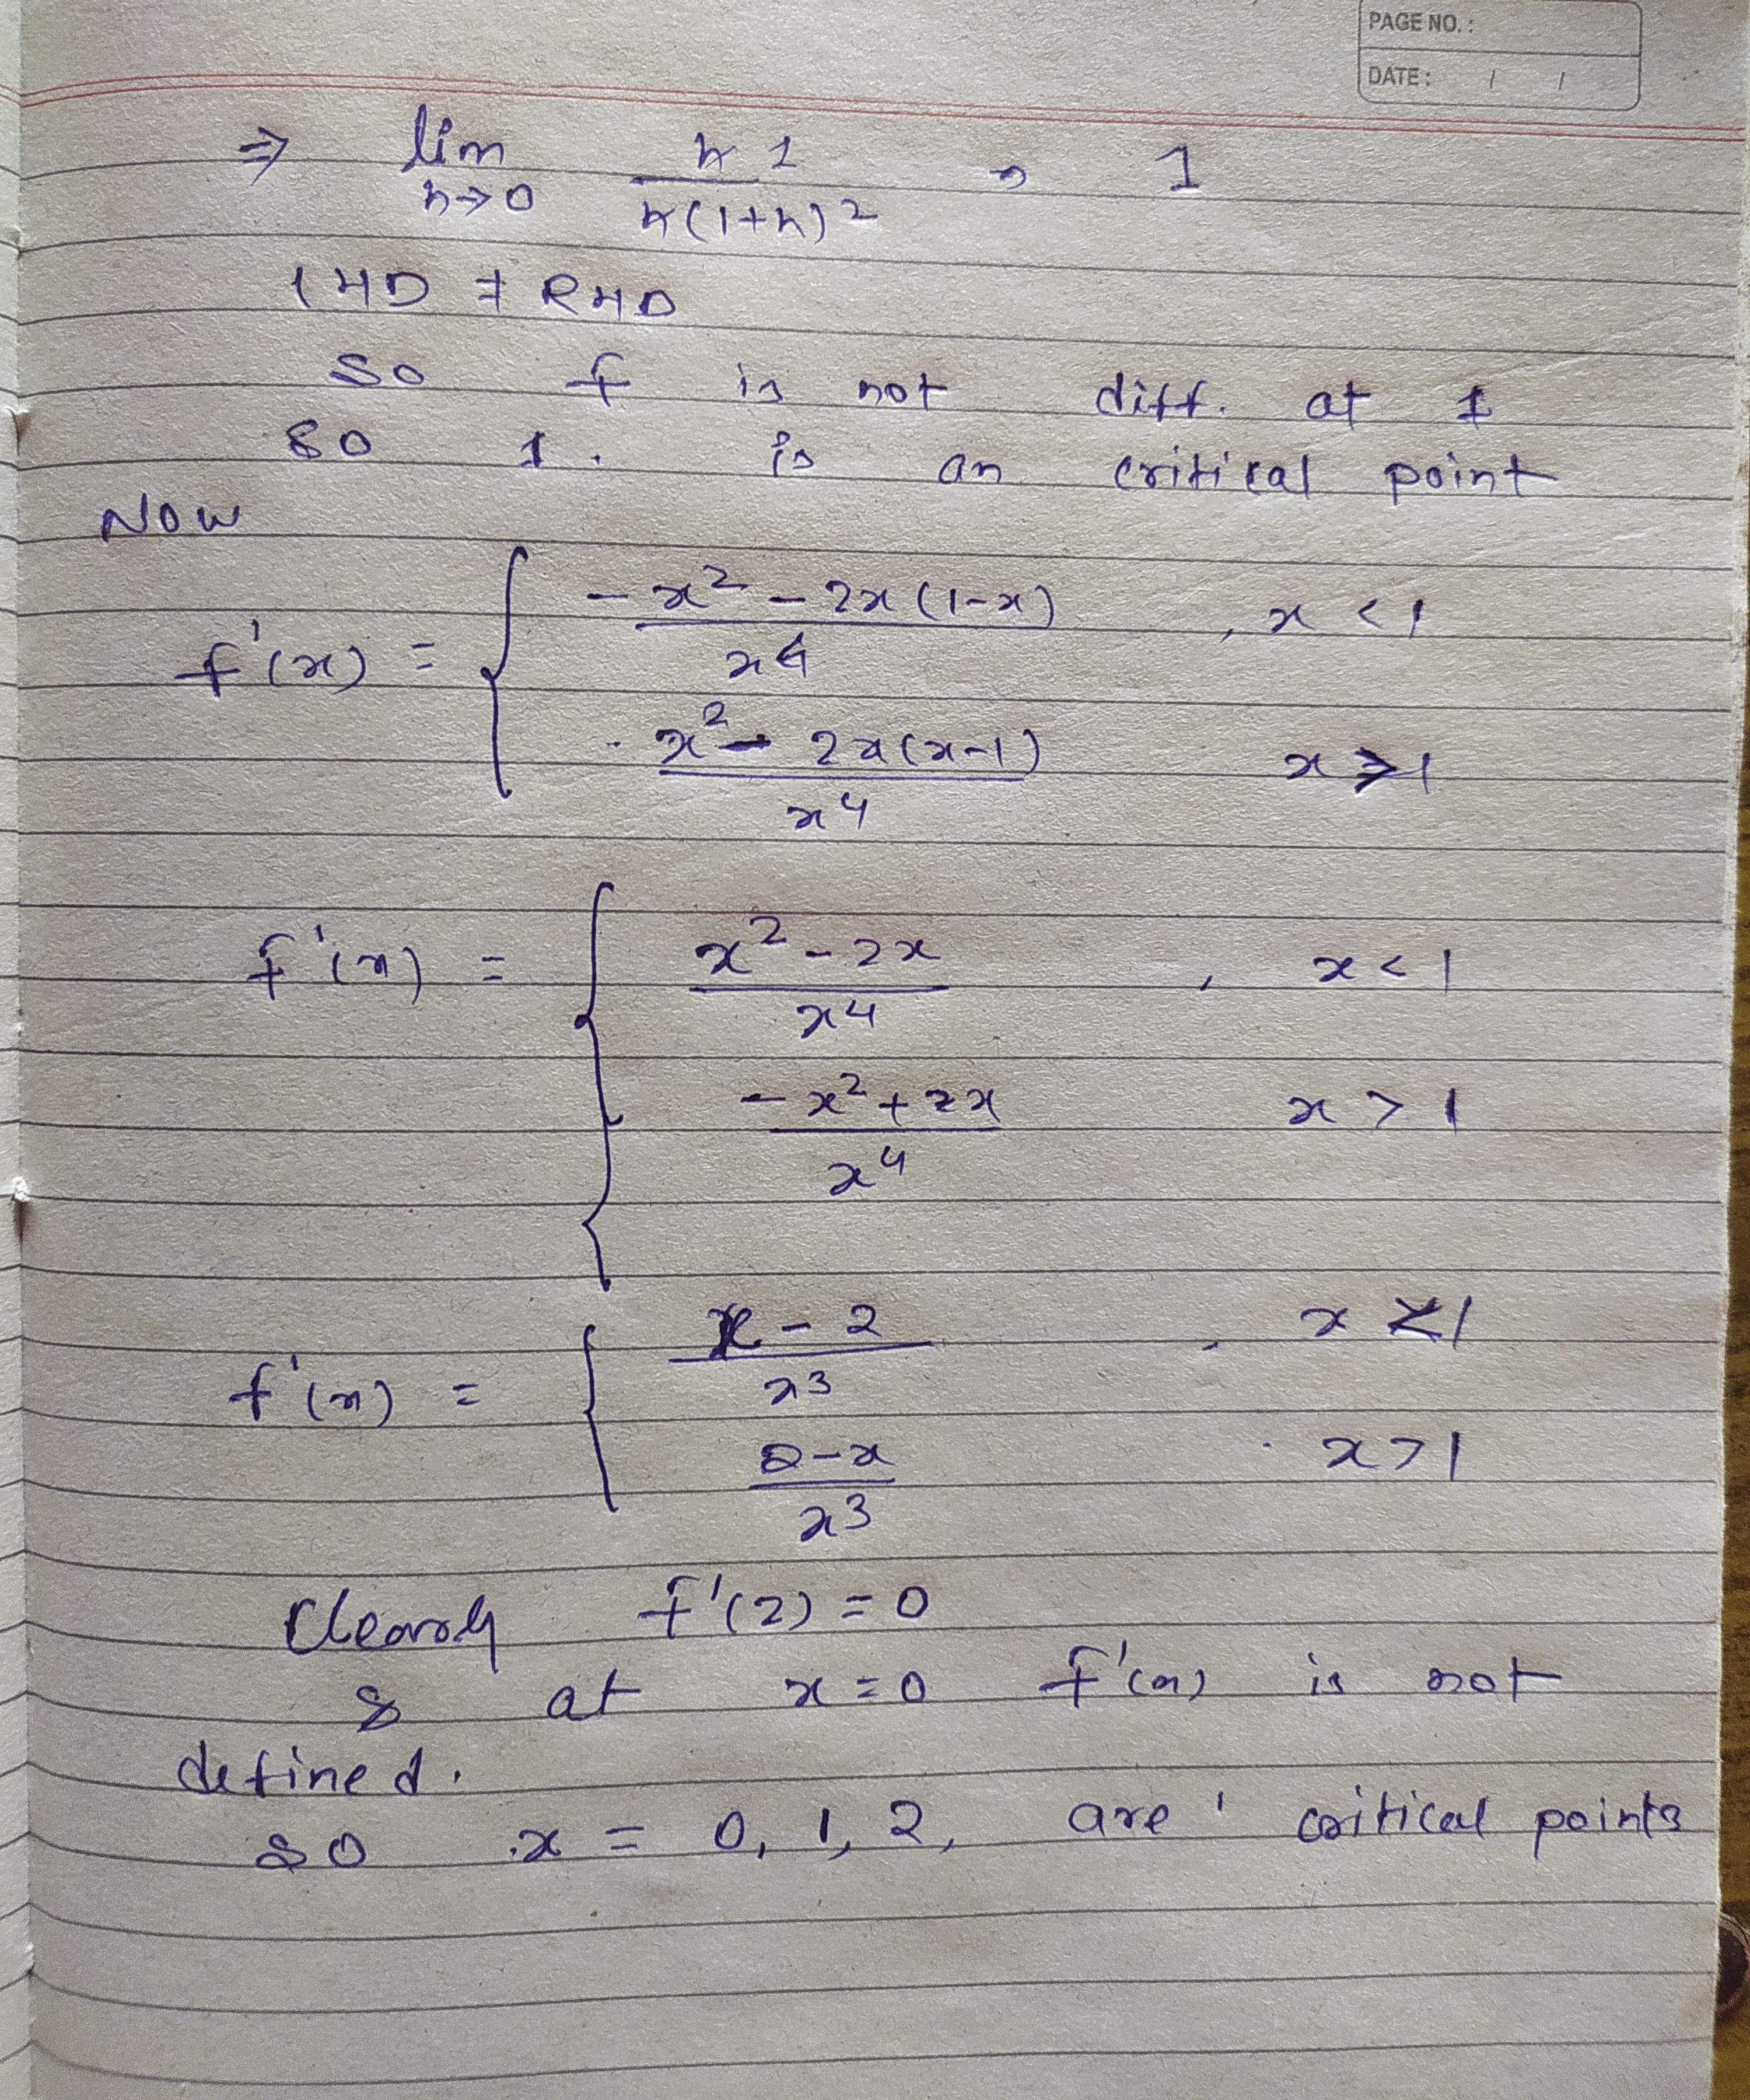 PAGE NO. :
DATE : / /
⇒ lim h→0 h 1 / h(1+h)² ⇒ 1
LHD ≠ RHD
so f is not diff. at 1
so 1. is an critical point
Now
f'(x) = { (-x² - 2x(1-x)) / x⁴ , x < 1
(x² - 2x(x-1)) / x⁴ x > 1
f'(x) = { (x² - 2x) / x⁴ , x < 1
(-x² + 2x) / x⁴ x > 1
f'(x) = { (x - 2) / x³ , x < 1
(2-x) / x³ . x > 1
Clearly f'(2) = 0
& at x = 0 f'(x) is not
defined.
so x = 0, 1, 2, are critical points